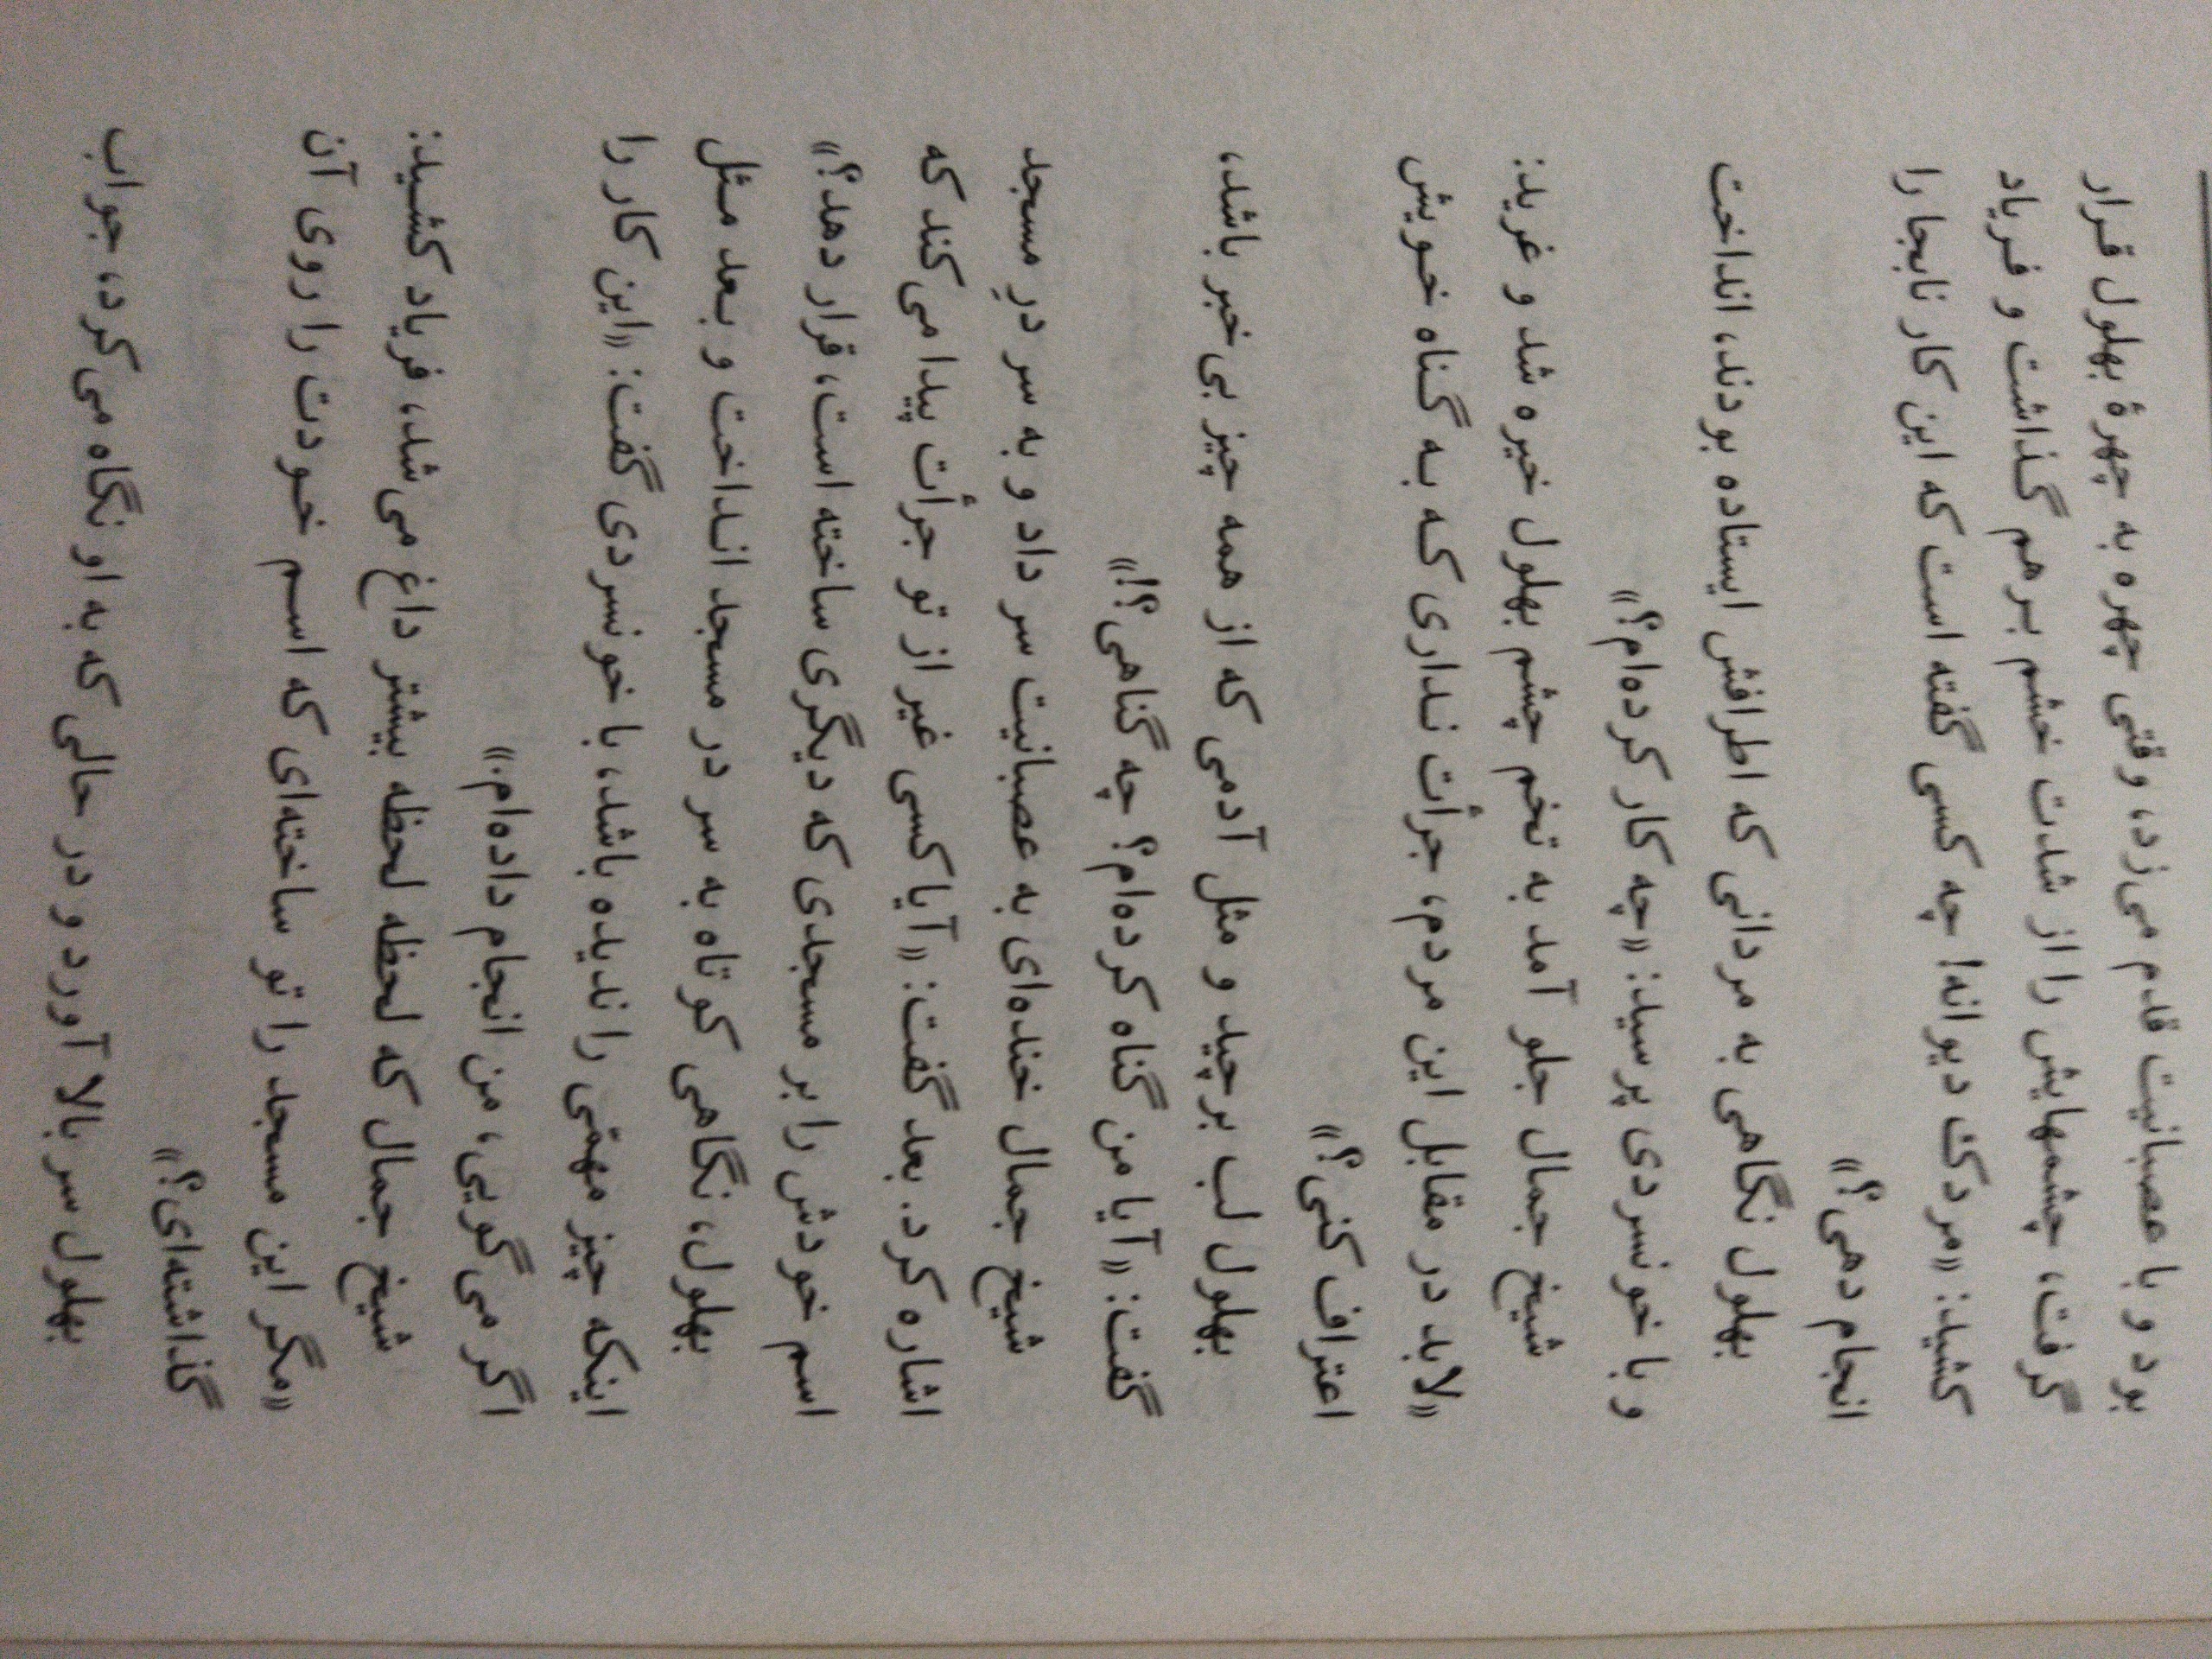 بود و با عصبانیت قدم می‌زد، وقتی چهره به چهرهٔ بهلول قرار
گرفت، چشمهایش را از شدت خشم برهم گذاشت و فریاد
کشید: «مردک دیوانه! چه کسی گفته است که این کار نابجا را
انجام دهی؟»
بهلول نگاهی به مردانی که اطرافش ایستاده بودند، انداخت
و با خونسردی پرسید: «چه کار کرده‌ام؟»
شیخ جمال جلو آمد به تخم چشم بهلول خیره شد و غرید:
«لابد در مقابل این مردم، جرأت نداری که به گناه خویش
اعتراف کنی؟»
بهلول لب برچید و مثل آدمی که از همه چیز بی‌خبر باشد،
گفت: «آیا من گناه کرده‌ام؟ چه گناهی؟!»
شیخ جمال خنده‌ای به عصبانیت سر داد و به سر درِ مسجد
اشاره کرد. بعد گفت: «آیا کسی غیر از تو جرأت پیدا می‌کند که
اسم خودش را بر مسجدی که دیگری ساخته است، قرار دهد؟»
بهلول، نگاهی کوتاه به سر در مسجد انداخت و بعد مثل
اینکه چیز مهمّی را ندیده باشد، با خونسردی گفت: «این کار را
اگر می‌گویی، من انجام داده‌ام.»
شیخ جمال که لحظه لحظه بیشتر داغ می‌شد، فریاد کشید:
«مگر این مسجد را تو ساخته‌ای که اسم خودت را روی آن
گذاشته‌ای؟»
بهلول سر بالا آورد و در حالی که به او نگاه می‌کرد، جواب